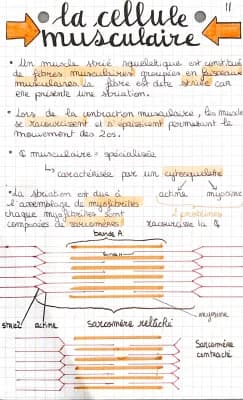 11
la cellule
musculaire
• Un muscle strié squelettique est constitué
de fibres musculaires groupées en faisceaux
musculaires la fibre est dite striée car
elle présente une striation.
• Lors de la contraction musculaire, les muscles
se raccourcissent et s'épaississent permettant le
mouvement des 2 os.
• musculaire = spécialisée
↳ caractérisée par un cytosquelette
• La striation est due à
l'assemblage de myofibrilles
chaque myofibrilles sont
composées de sarcomères
actine myosine
2 protéines
raccourcisse la
bande A
strie Z actine
myosine
Sarcomère relâché
Sarcomère
contracté